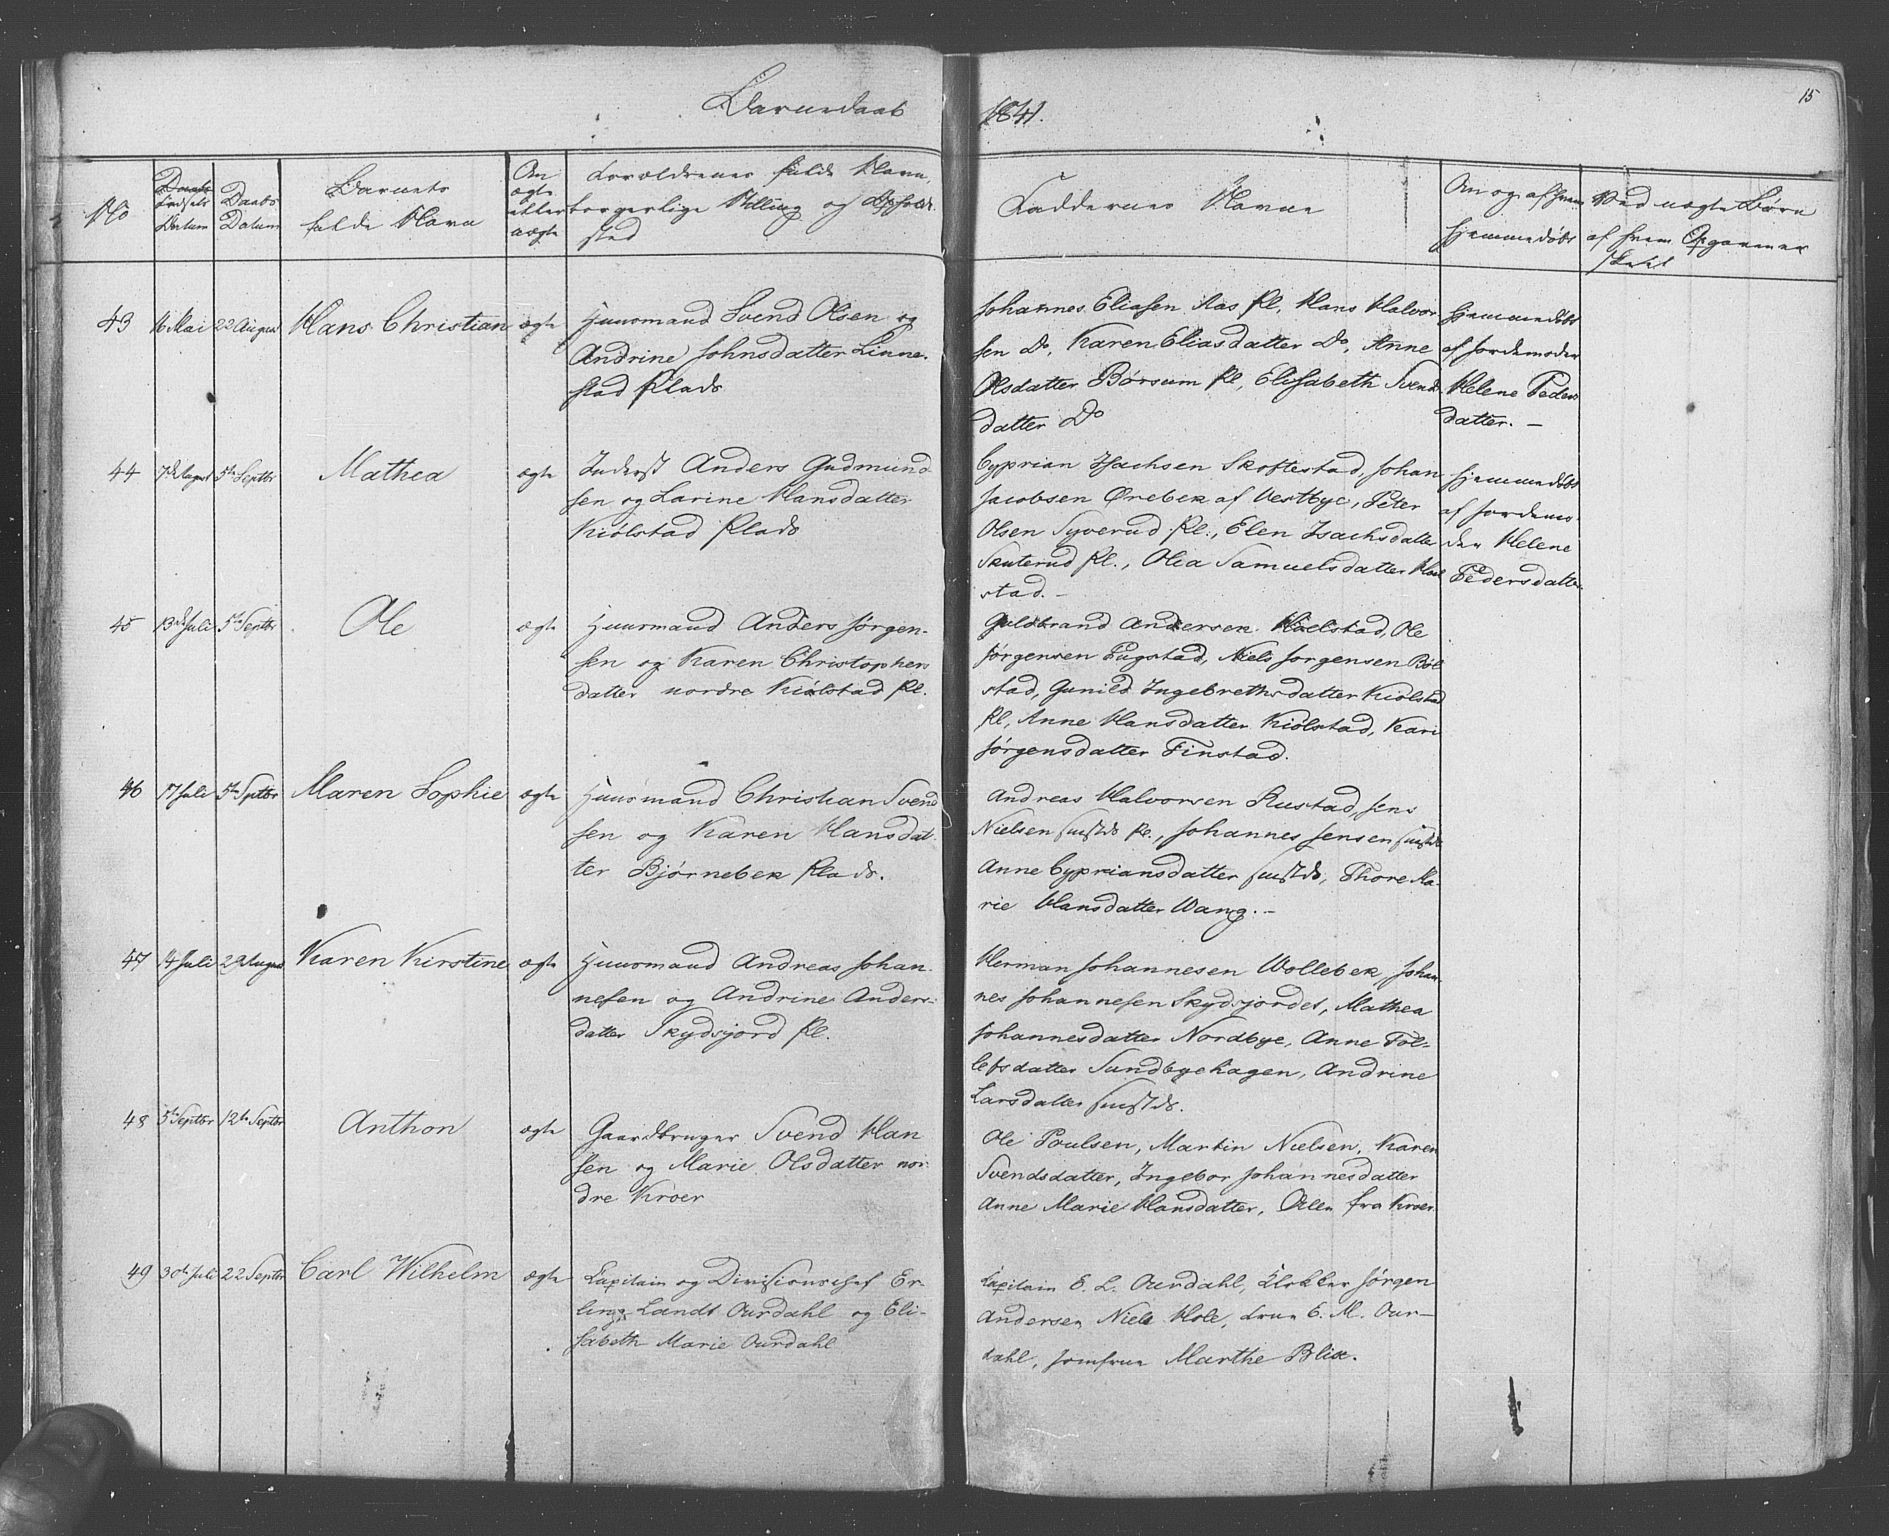 Barnedaab
1841.
15
No
Fødsels Datum
Daabs Datum
Barnets fulde Navn
Om ægte eller uægte
Forældrenes fulde Navn, borgerlige Stilling og Opholdssted
Faddernes Navne
Om og af hvem hjemmedøbt
Ved uægte Børn af hvem Opgavene skeet
43 16 Mai 22 August Hans Christian ægte
Huusmand Svend Olsen og
Andrine Johnsdatter Linne-
stad Plads
Johannes Eliasen Aas Pl, Hans Halvor
sen Do, Karen Eliasdatter Do, Anne
Olsdatter Børsum Pl, Elisabeth Svends
datter Do
hjemmedøbt
af Jordemoder
Helene Peders
datter. —
44 7de August 5te Septbr Mathea ægte
Inderst Anders Gudmund
sen og Larine Hansdatter
Kiølstad Plads
Cyprian Isachsen Skoftestad, Johan
Jacobsen Ørebek af Vestbye, Peter
Olsen Syverud Pl., Elen Isachsdatter
Skuterud Pl., Olea Samuelsdatter
stad. —
hjemmedøbt
af Jordemo-
der Helene
Pedersdatter
45 13de Juli 5te Septbr Ole ægte
Huusmand Anders Jørgen-
sen og Karen Christophers
datter nordre Kiølstad Pl.
Guldbrand Andersen Kiølstad, Ole
Jørgensen Fugstad, Niels Jorgensen Bøl
stad, Gunild Ingebrethsdatter Kiølstad
Pl, Anne Hansdatter Kiølstad, Kari
Jørgensdatter Finstad.
46 17 Juli 5te Septbr Maren Sophie ægte
Huusmand Christian Svend
sen og Karen Hansdat-
ter Bjørnebek Plads.
Andreas Halvorsen Rustad, Jens
Nielsen sustds Pl., Johannes Jensen sustds
Anne Cypriansdatter sustds, Thore Ma-
rie Hansdatter Wang. —
47 14 Juli 29 August Karen Kirstine ægte
Huusmand Andreas Johan-
nesen og Andrine Anders-
datter Skydsjord Pl.
Herman Johannesen Wollebek, Johan
nes Johannesen Skydsjordet, Mathea
Johannesdatter Nordbye, Anne Tol-
lefsdatter Sundbyehagen, Andrine
Larsdatter sustds.
48 5te Septbr 12te Septbr Anthon ægte
Gaardbruger Svend Han
sen og Marie Olsdatter nor
dre Kroer
Ole Poulsen, Martin Nielsen, Karen
Svendsdatter, Ingebor Johannesdatter
Anne Marie Hansdatter, Alle fra Kroer.
49 30de Juli 22 Septbr Carl Wilhelm ægte
Capitain og Divisionschef Er-
ling Landt Ourdahl og Eli-
sabeth Marie Ourdahl
Capitain E. L. Ourdahl, Klokker Jørgen
Andersen, Niels Hole, Frue E. M. Our-
dahl, Jomfrue Marthe Blix.